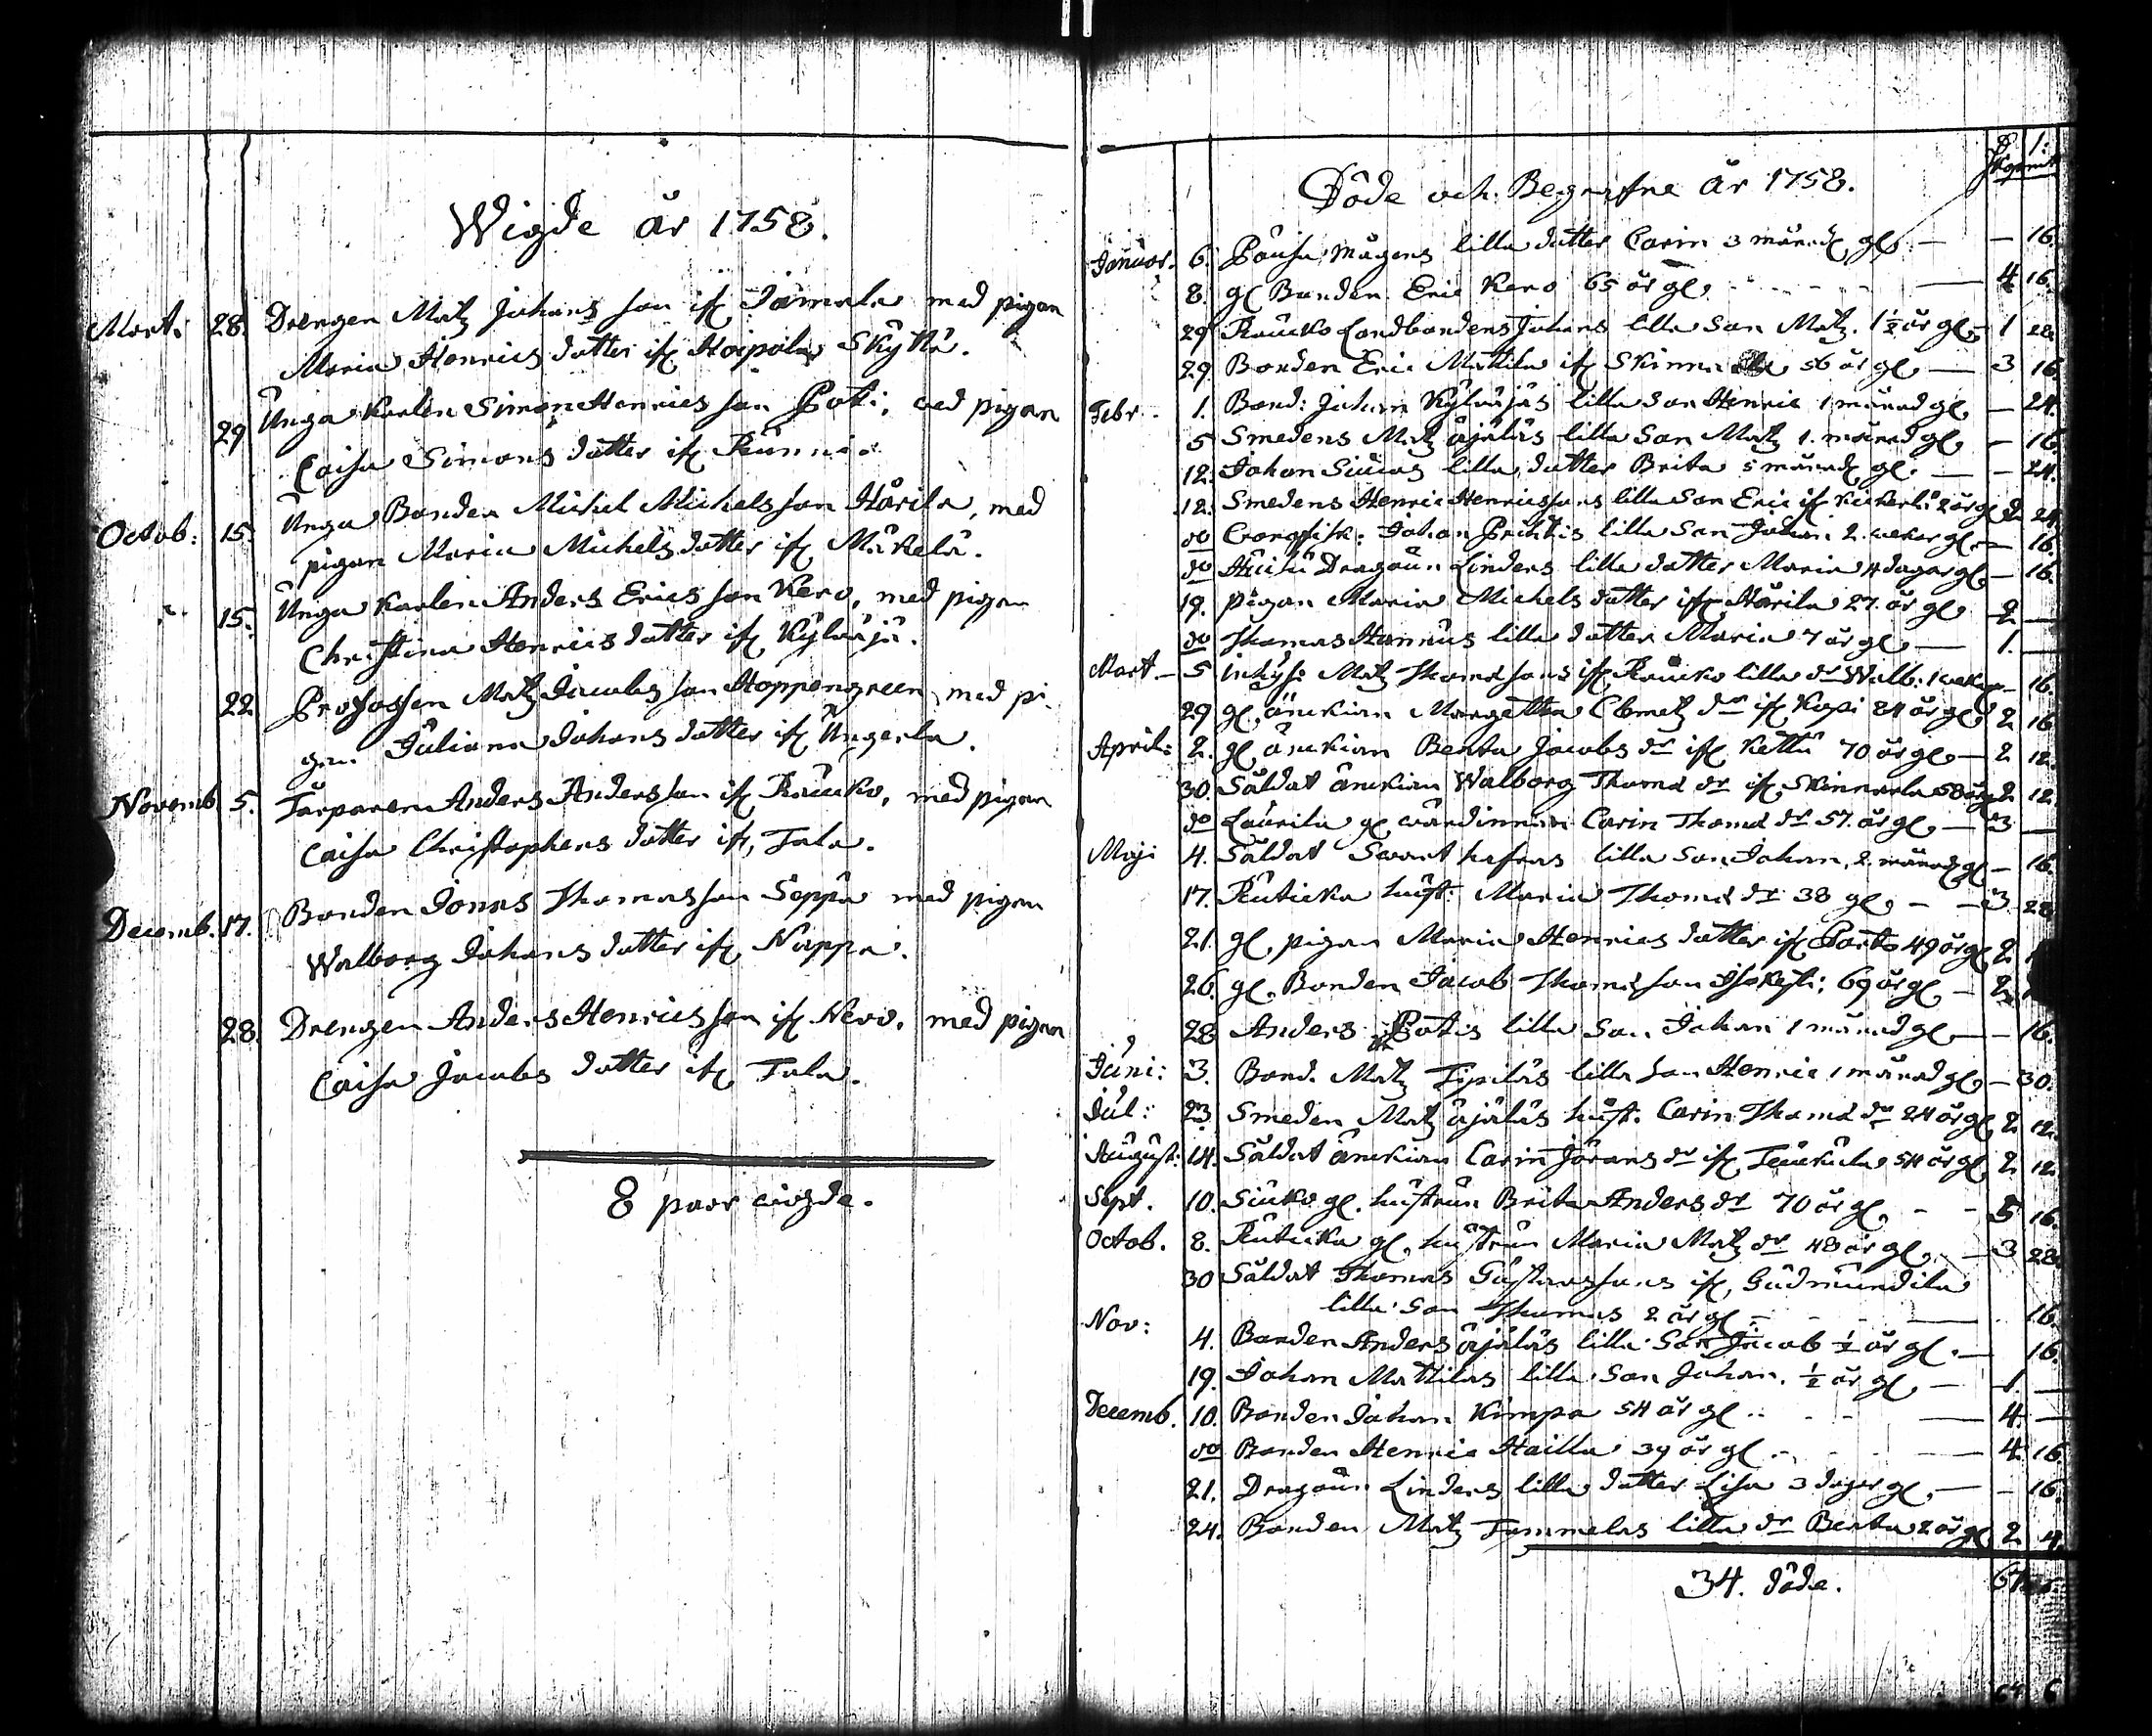 Wigde år 1758.
Marti 28. Drengen Matz Johans son ifr. Jämala med pigan
Maria Henrics dotter ifr. Hoipola Skÿttä.
29 Unga Karlen Simon Henrics son Poti, med pigan
Caisa Simons dotter ifr.
Octob: 15. Unga Bonden Michel Michelsson Hårila, med
pigan Maria Michels dotter ifr. Mäkelä.
15. Unga Karlen Anders Erics son Kero, med pigan
Christina Henrics dotter ifr. Kÿläjä.
22. Profossen Matz Jacobs son Hoppengreen med pi-
gan Juliana Johans dotter ifr. Ungerla.
Novemb. 5. Torparen Anders Andersson ifr. Raucko, med pigan
Caisa Christophers dotter ifr. Tala.
Decemb. 17. Bonden Jonas Thomasson Seppä med pigan
Walborg Johans dotter ifr. Nappa.
28. Drengen Anders Henricsson ifr. Nero, med pigan
Caisa Jacobs dotter ifr. Tala.
8 paar wigde.
Döde och Begrafne år 1758.
Januar. 6. Mågens lilla dotter Carin 3 månad gl. — — 16.
8. gl. Bonden Eric Kero 65 år gl. — 4 16.
29 Raucko Landbondens Johans lilla son Matz 1 1/2 år gl. 1 28
29. Bonden Eric Mattila ifr. 56 år gl. — 3 16
Febr. 1. Bond: Johan Kÿläjäs lilla son Henric 1 månad gl. — 24.
5 Smedens Matz äjäläs lilla son Matz 1. månad gl. — 16.
12. Johan lilla dotter Brita 5 månad gl. — — 24.
12. Smedens Henric Henricssons lilla son Eric ifr. 2 år gl. 2 24
do Johan lilla son Johan 2. wekor gl. — 16.
do Dragoun Linders lilla dotter Maria 4 dagar gl. — 16.
19. pigan Maria Michels dotter ifr. Hårila 27. år gl. 2 —
do Thomas Hannus lilla dotter Maria 7 år gl. — 1. —
Mart. 5 Inhÿs: Matz Thomæ sons ifr. Raucko lilla dr Walb. 1 weka — 16.
29 gl. änckian Margetta Clemetz dr ifr. Kopi 84 år gl. 2 16
April: 2. gl. änckian Beata Jacobs dr ifr. Kettu 70 år gl. — 2 12.
30. Såldat änckian Walborg Thomæ dr ifr. Skinnarla 58 år gl. 2 12
do Laurila gl. wärdinnan Carin Thomæ dr 57. år gl. — 3 —
Maji 4. Såldat Swart hafras lilla son Johan, 2. månad gl. — 16.
17. hust: Maria Thomæ dr 38 gl. — — 3 28
21. gl. pigan Maria Henrics dotter ifr. 49 år gl. 2
26. gl. Bonden Jacob Thomæ son 69 år gl. — 2
28 Anders Potis lilla son Johan 1 månad gl. — — 16.
Juni: 3. Bond. Matz lilla son Henric 1 månad gl. — 30.
Jul: 23. Smeden Matz äjäläs hust. Carin Thomæ dr 24 år gl. 2 12.
August: 14. Såldat änckian Carin Jörans dr ifr. 54 år gl. 2 12.
Sept. 10. gl. hustrun Brita Anders dr 70 år gl. — — 5 16.
Octob. 8. gl. hustrun Maria Matz dr 48 år gl. — 3 28.
30 Såldat Thomas Gustafssons ifr. Gudmundila
lilla son Thomas 2 år gl. — 16.
Nov: 4. Bonden Anders äjäläs lilla son Jacob 1/2 år gl. — 16.
19. Johan Mattilas lilla son Johan. 1/2 år gl. — 1. —
Decemb. 10. Bonden Johan Kimpa 54 år gl. — 4. —
do Bonden Henric Hailla 39 år gl. — 4 16
21. Dragoun Linders lilla dotter Lisa 3 dagar gl. — — 16.
24. Bonden Matz Tammelas lilla dr Beata 2 år gl. 2 4.
34. döde. 67